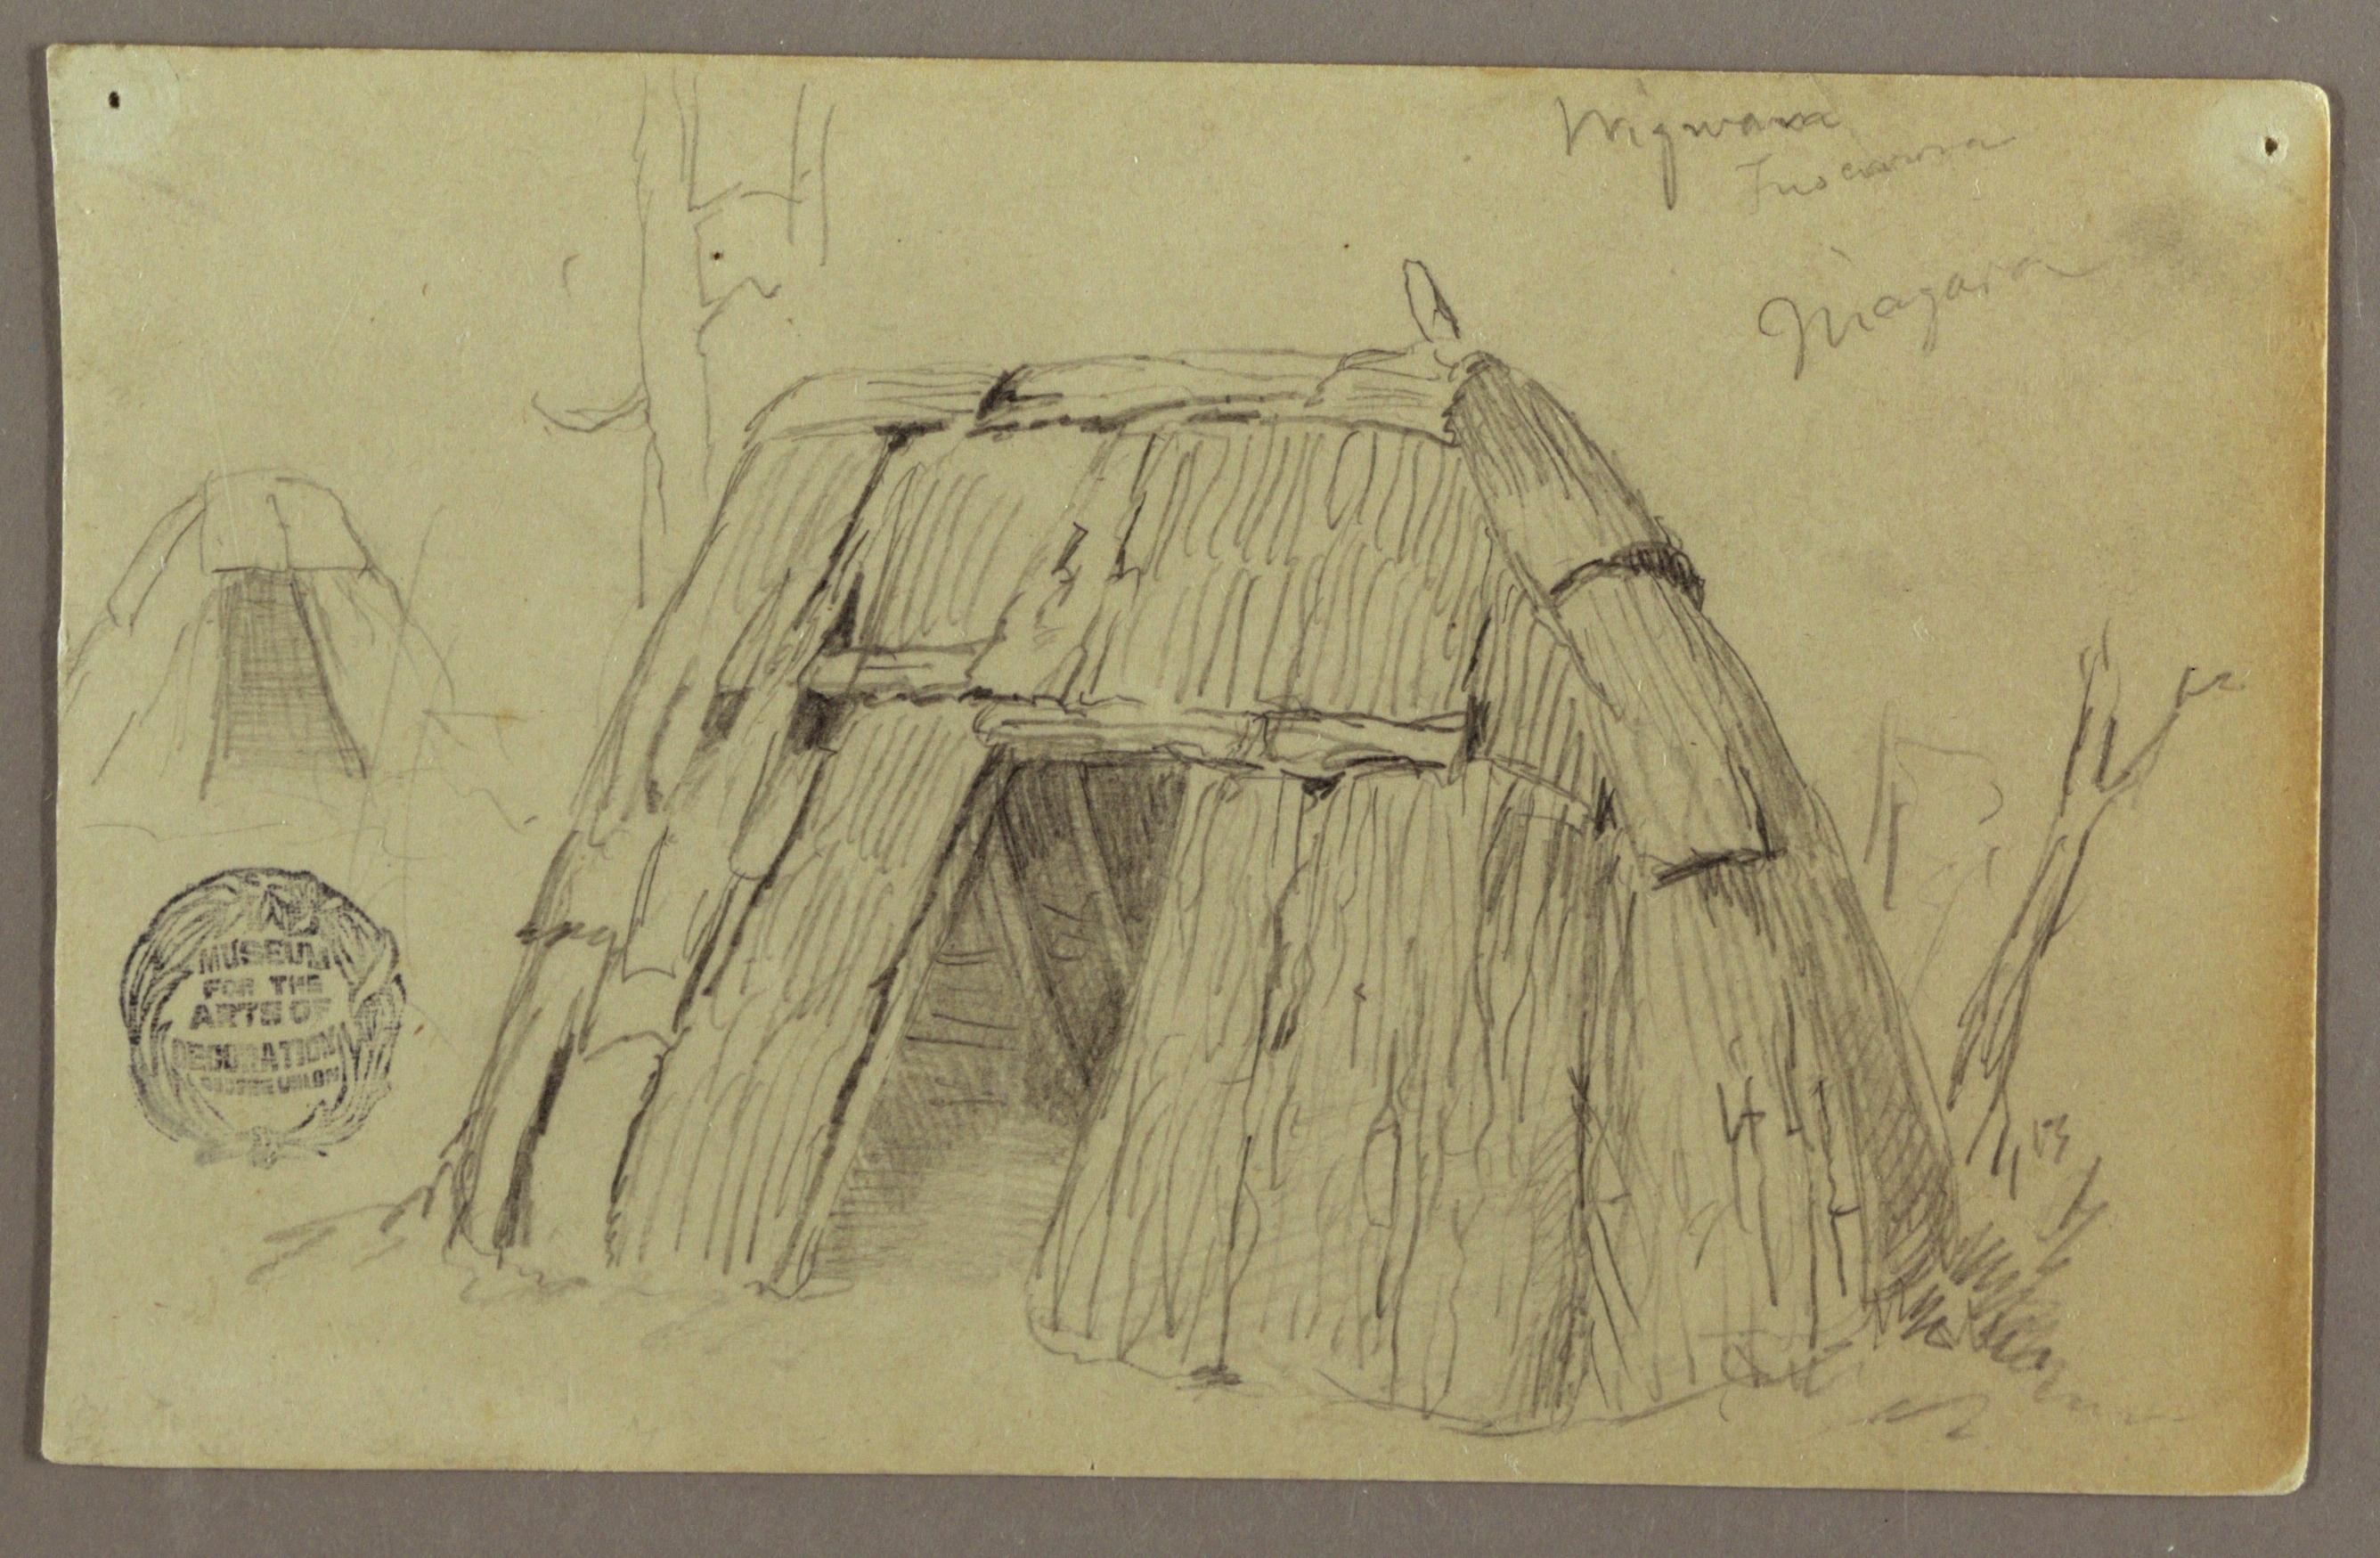 Wigwam
Tuscarora
Niagara
MUSEUM
FOR THE
ARTS OF
DECORATION
COOPER UNION